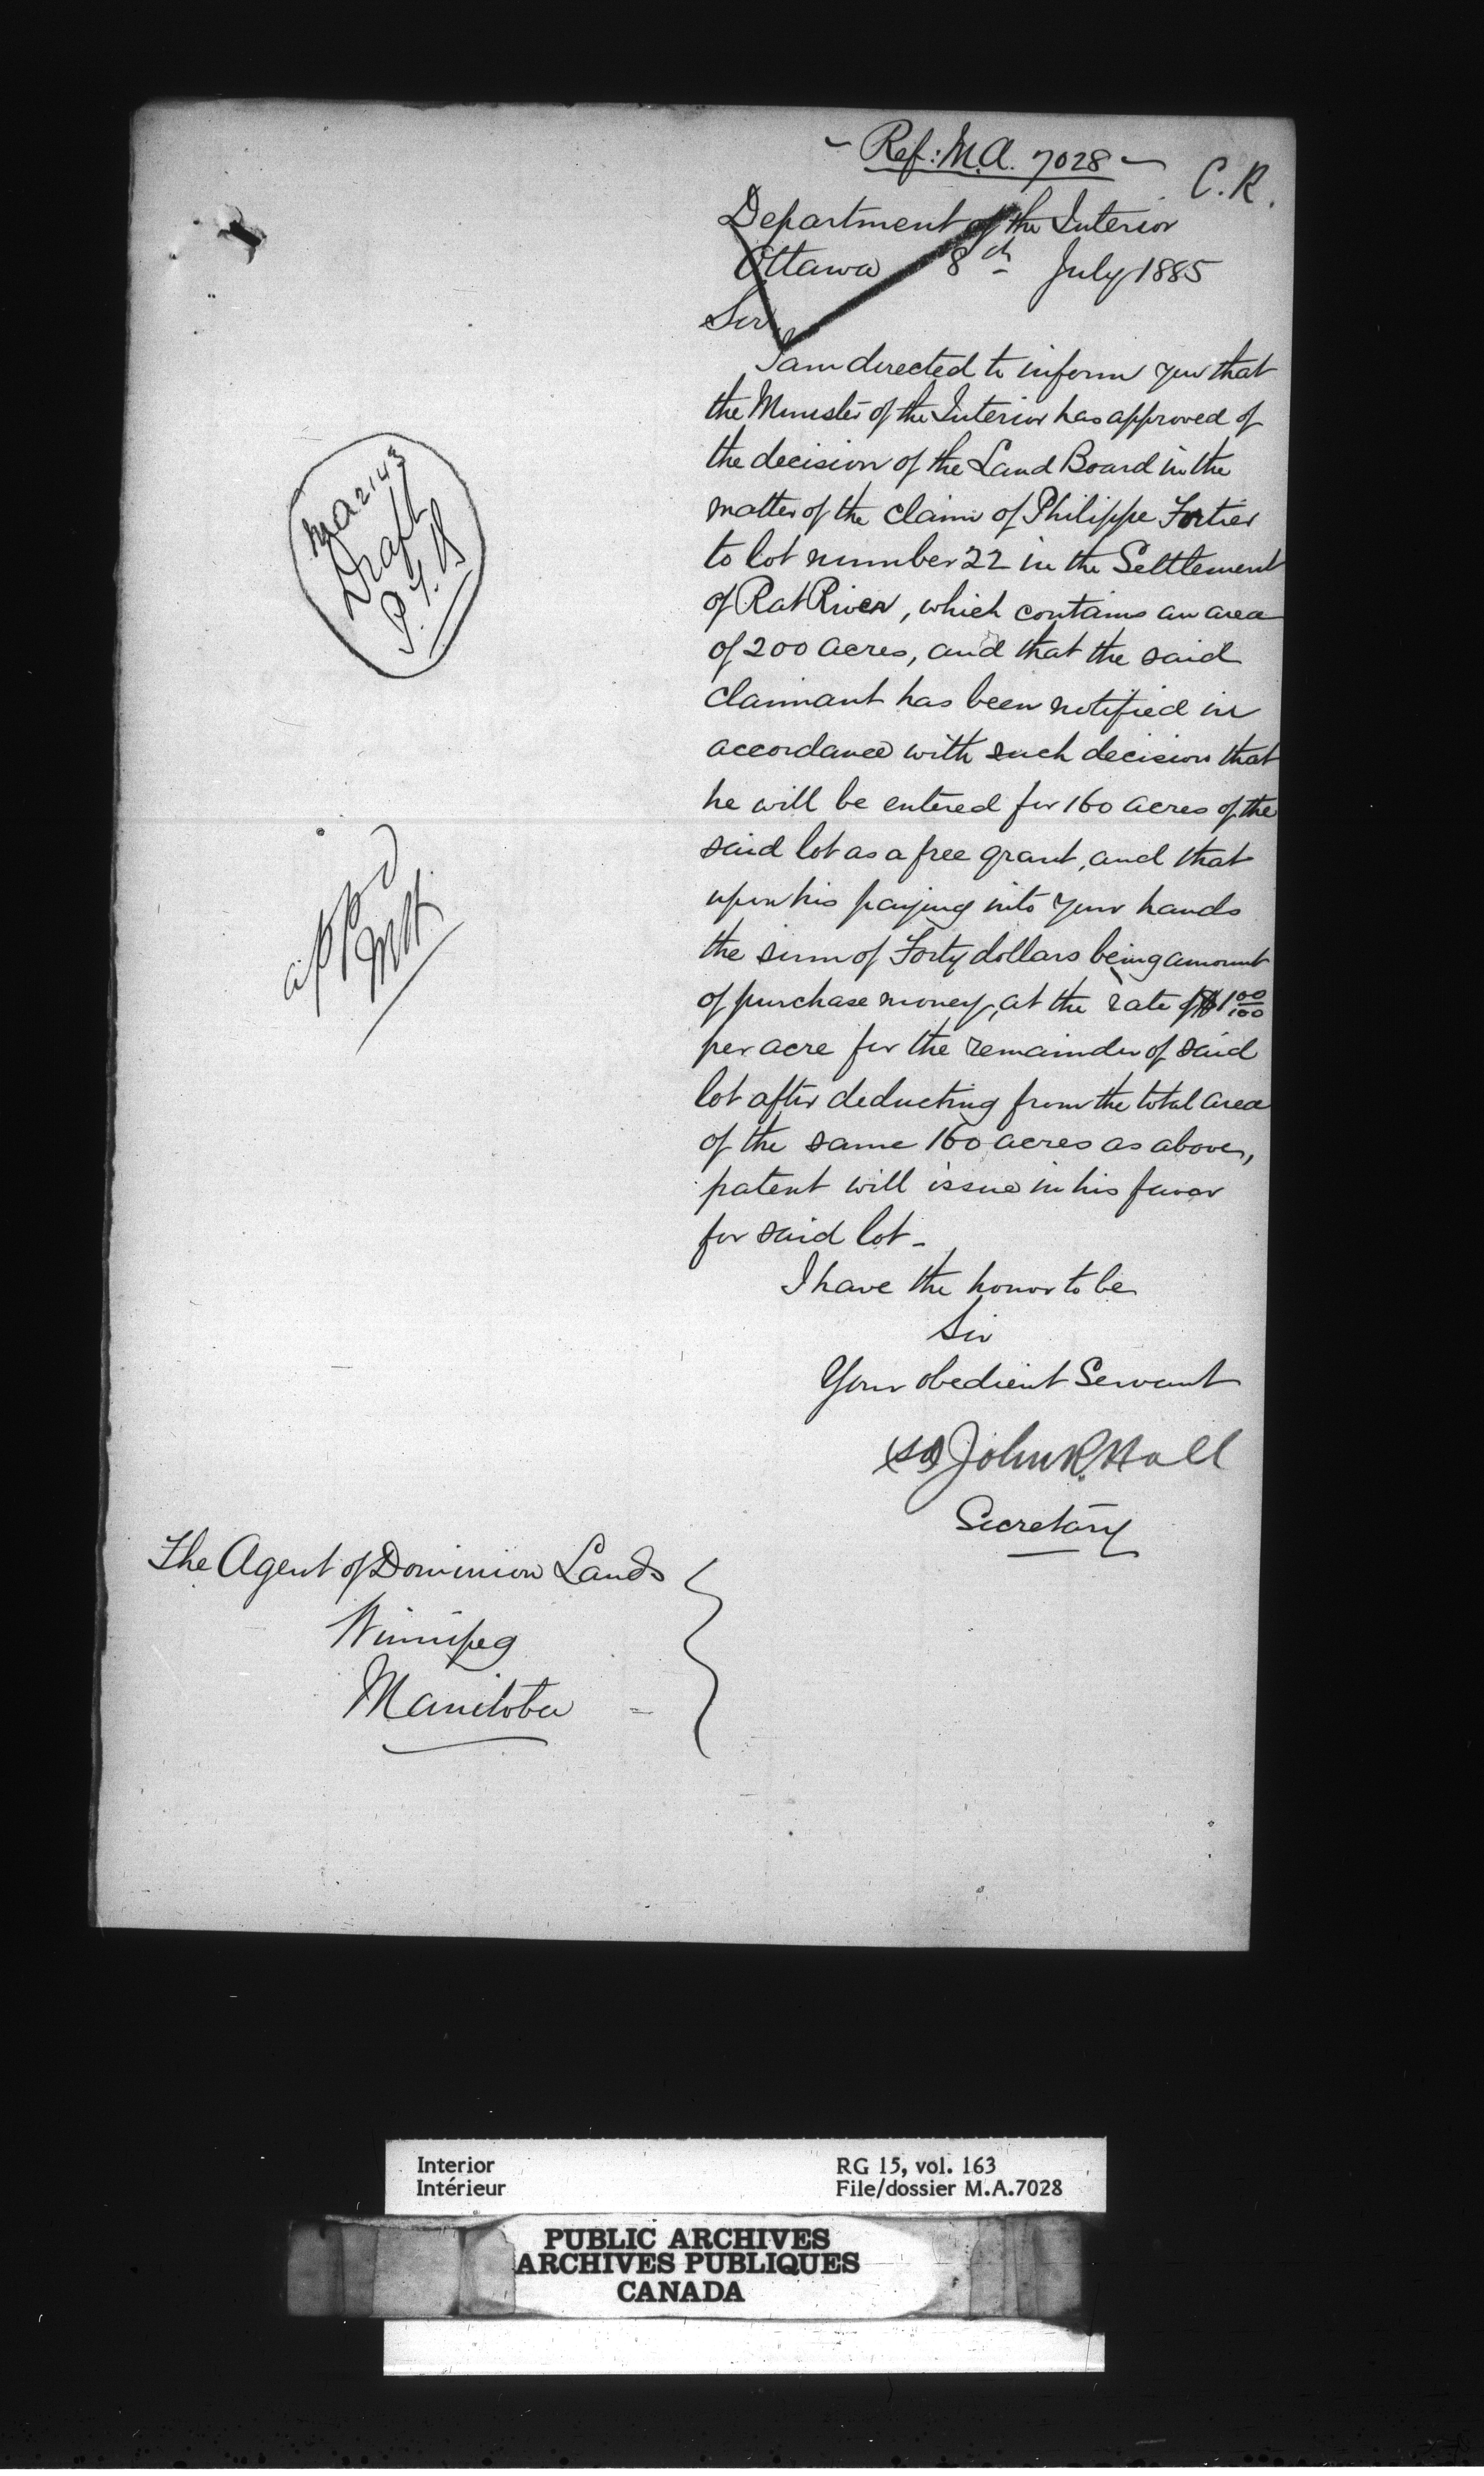 Ref: M.A. 7028
C. R.
Department of the Interior
Ottawa 8th July 1885
Sir,
I am directed to inform you that
the Minister of the Interior has approved of
the decision of the Land Board in the
matter of the claim of Philippe Fortier
to lot number 22 in the Settlement
of Rat River, which contains an area
of 200 acres, and that the said
claimant has been notified in
accordance with such decision that
he will be entered for 160 acres of the
said lot as a free grant, and that
upon his paying into your hands
the sum of Forty dollars being amount
of purchase money, at the rate of $1 00/100
per acre for the remainder of said
lot after deducting from the total area
of the same 160 acres as above,
patent will issue in his favor
for said lot -
I have the honor to be
Sir
Your obedient Servant
(sd) John R. Hall
Secretary
MA 2143
Draft
appd
MH
The Agent of Dominion Lands
Winnipeg
Manitoba
Interior
Intérieur
RG 15, vol. 163
File/dossier M.A.7028
PUBLIC ARCHIVES
ARCHIVES PUBLIQUES
CANADA